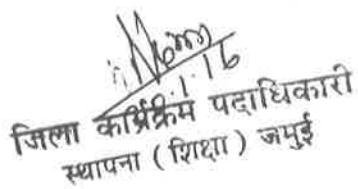 जिला कार्यक्रम पदाधिकारी
स्थापना (शिक्षा) जमुई